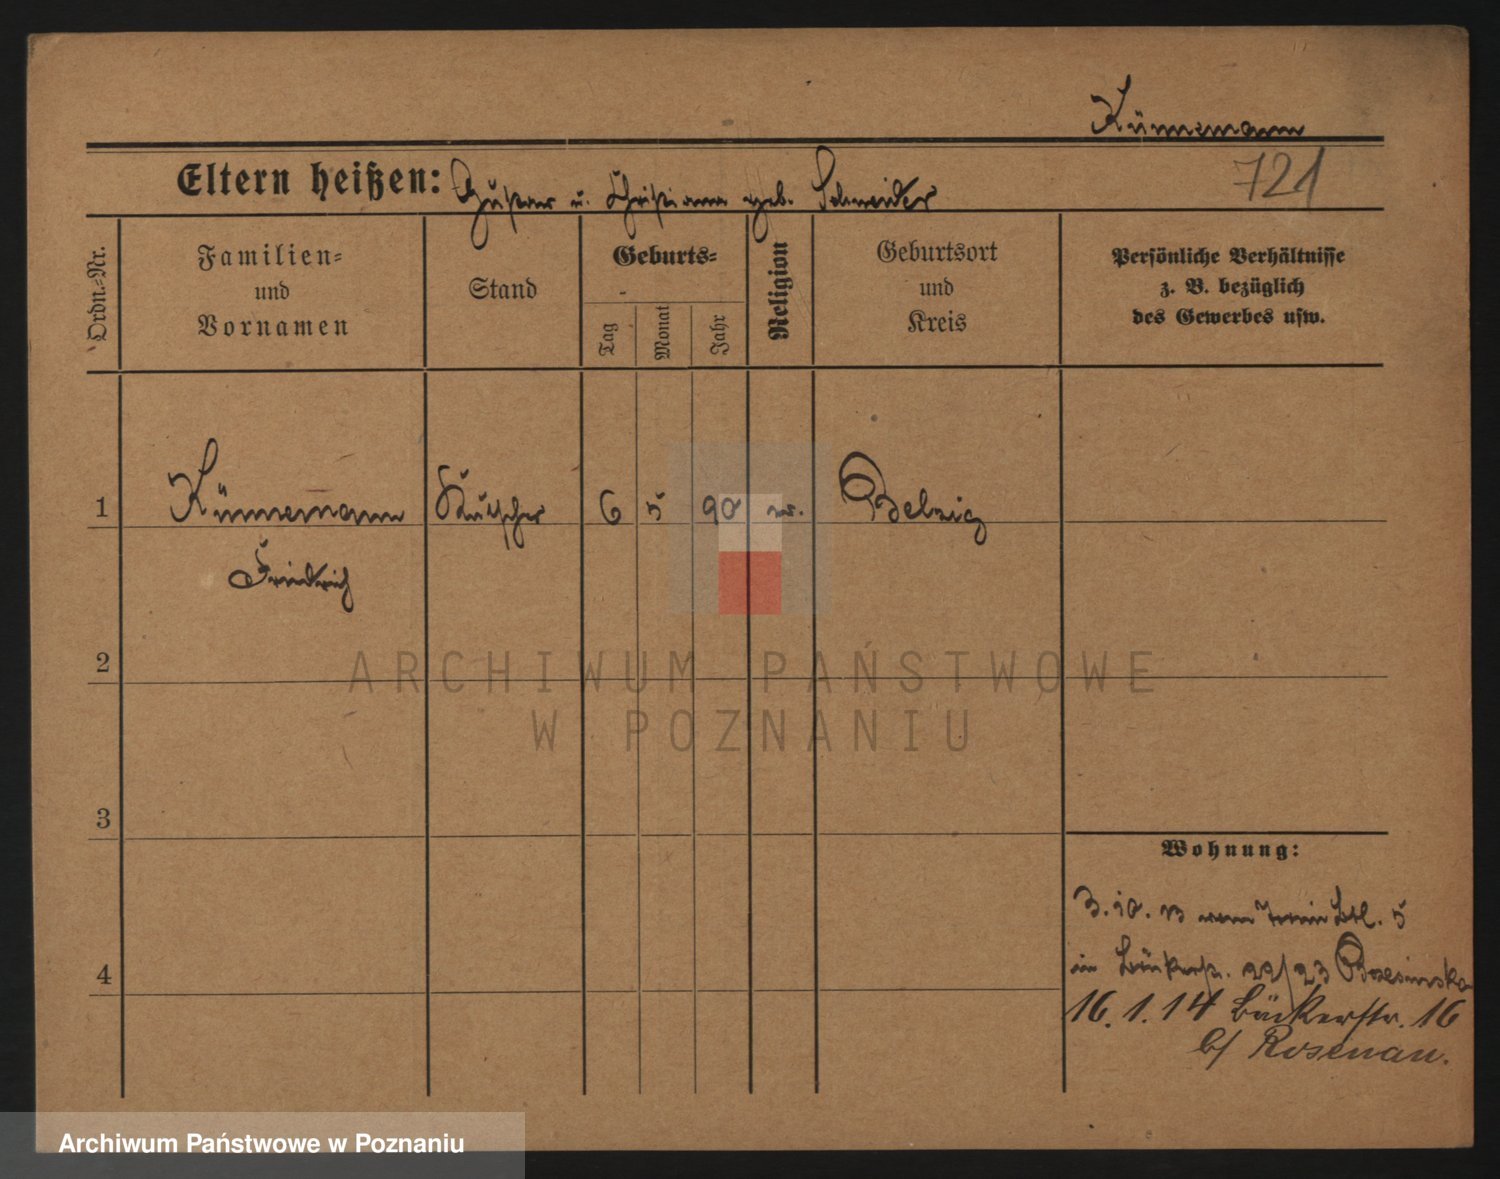 Künnemann
721
Eltern heißen: Gustav u. Christiane geb. Schneider
Ordn.-Nr.
Familien-
und
Vornamen
Stand
Geburts-
Tag
Monat
Jahr
Religion
Geburtsort
und
Kreis
Persönliche Verhältnisse
z. B. bezüglich
des Gewerbes usw.
1 Künnemann Kutscher 6 5 90 ev. Belzig
Friedrich
2
3
4
Wohnung:
3.10.13 vom Train Btl. 5
in Bäckerstr. 22/23
16.1.14 Bäckerstr. 16
b/ Rosenau.
ARCHIWUM PAŃSTWOWE
W POZNANIU
Archiwum Państwowe w Poznaniu